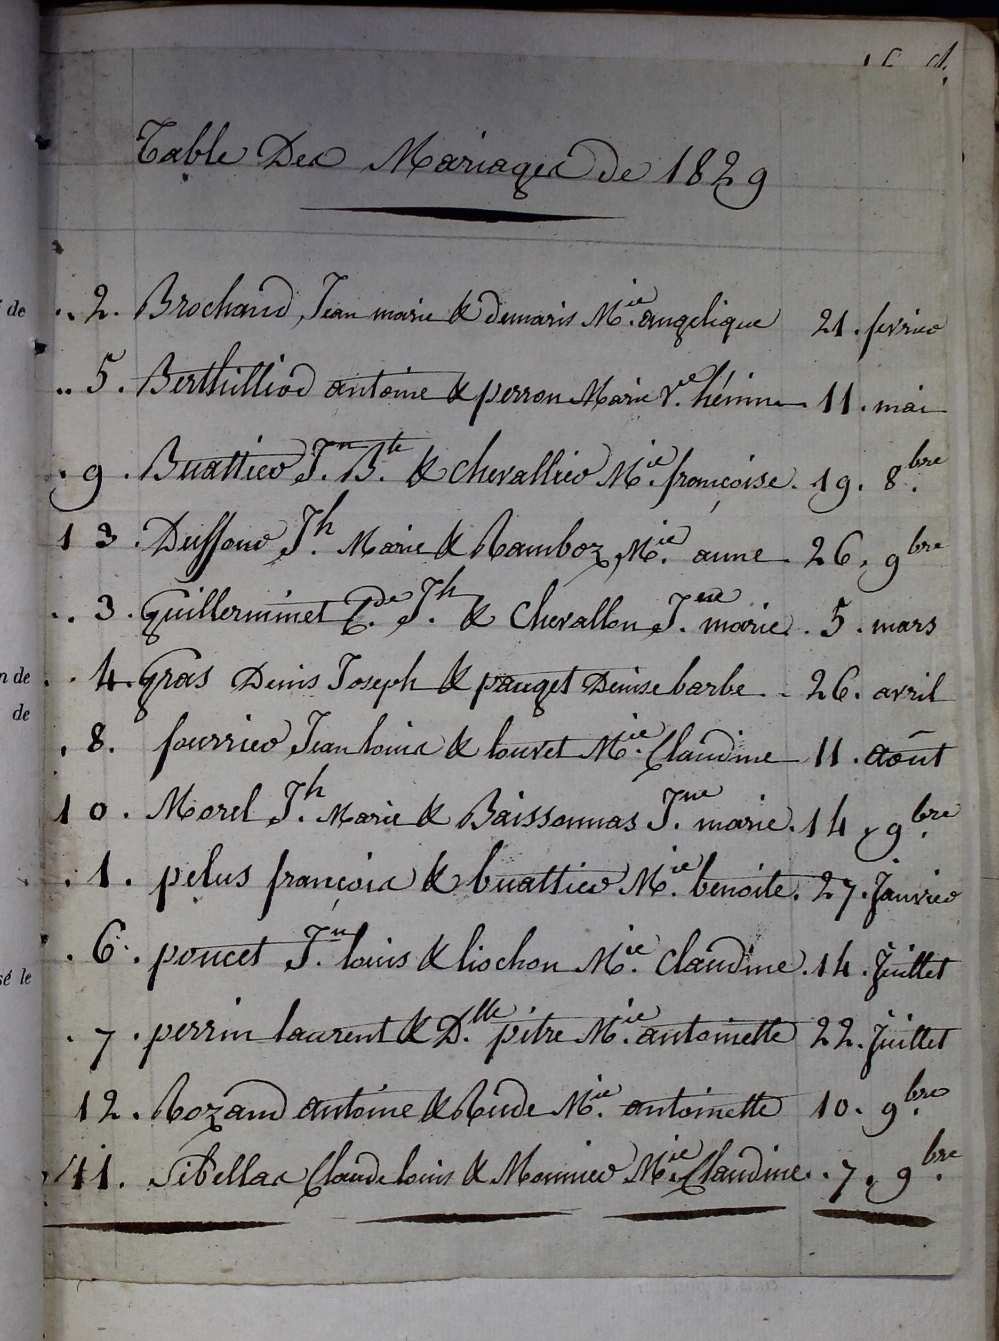 Table Des Mariages de 1829
de
2. Brochand, Jean marie & demaris M.ie angelique 21. fevrier
5. Berthilliod antoine & perron Marie v.ve hémin 11. mai
9. Buattier J.n B.te & Chevallier M.ie françoise. 19. 8.bre
13. Duffour J.h Marie & Ramboz, M.ie anne 26. 9bre
3. Guillerminet C.de J.h & Chevallon J.ne marie. 5. mars
n de
4. Gras Denis Joseph & pauget Denise barbe 26. avril
de
8. fourrier Jean louis & louvet M.ie Claudine 11. août
10. Morel J.h Marie & Baissonnas J.ne marie. 14. 9.bre
1. pelus françois & buattier M.ie benoite. 27. Janvier
6. poncet J.n louis & liochon M.ie Claudine. 14. Juillet
sé le
7. perrin laurent & D.lle pitre M.ie antoinette 22. Juillet
12. Rozand antoine & Rude M.ie antoinette 10. 9.bre
11. Sibellas Claude louis & Monnier M.ie Claudine. 7. 9.bre